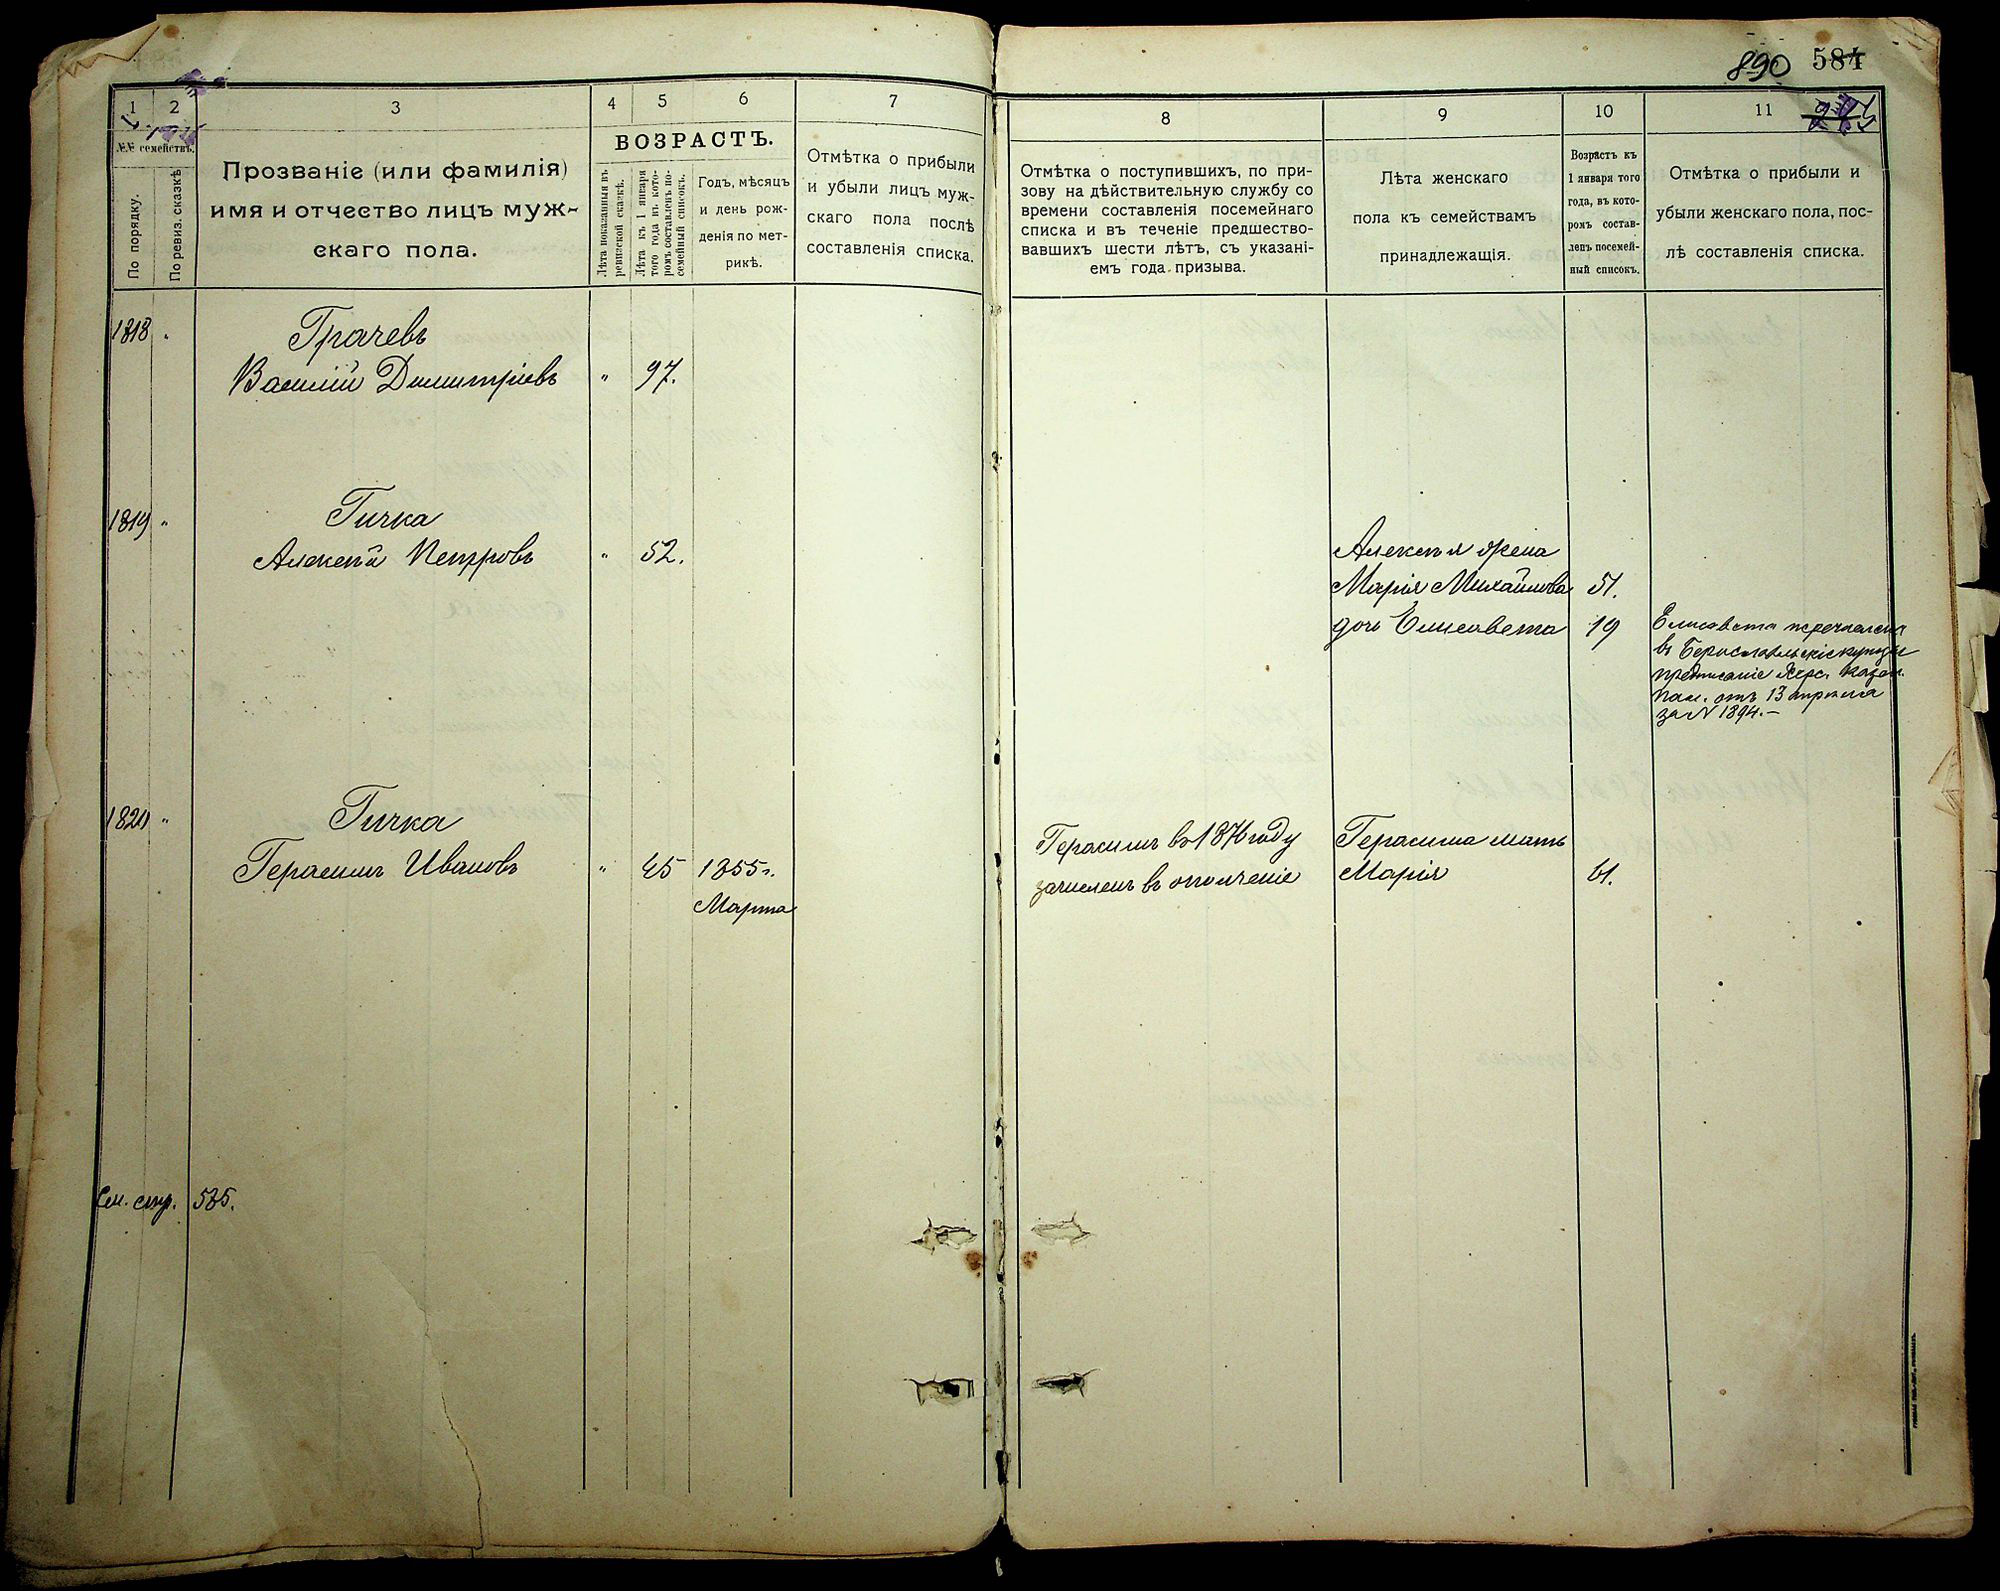 890 584
1 2 3 4 5 6 7
№№ семействъ.
По порядку.
По ревиз. сказкѣ
Прозваніе (или фамилія)
имя и отчество лицъ муж-
скаго пола.
ВОЗРАСТЪ.
Лѣта показанныя въ
ревизской сказкѣ.
Лѣта къ 1 января
того года въ кото-
ромъ составленъ по-
семейный списокъ.
Годъ, мѣсяцъ
и день рож-
денія по мет-
рикѣ.
Отмѣтка о прибыли
и убыли лицъ муж-
скаго пола послѣ
составленія списка.
8 9 10 11
Отмѣтка о поступившихъ, по при-
зову на дѣйствительную службу со
времени составленія посемейнаго
списка и въ теченіе предшество-
вавшихъ шести лѣтъ, съ указані-
емъ года призыва.
Лѣта женскаго
пола къ семействамъ
принадлежащія.
Возрастъ къ
1 января того
года, въ кото-
ромъ состав-
ленъ посемей-
ный списокъ.
Отмѣтка о прибыли и
убыли женскаго пола, пос-
лѣ составленія списка.
1818 " Грачевъ
Василій Димитріевъ " 97.
1819 " Гичка
Алексѣй Петровъ " 52.
Алексѣя жена
Марія Михайлова 51.
дочь Елисавета 19
Елисавета перечислена
въ Бериславльскіе купцы
предписаніе Херс. Казен.
Пал. отъ 13 апрѣля
за № 1394.-
1820 " Гичка
Герасимъ Ивановъ " 45 1855г.
Марта
Герасимъ въ 1876 году
зачисленъ въ ополченіе
Герасима мать
Марія 61.
См. стр. 585.